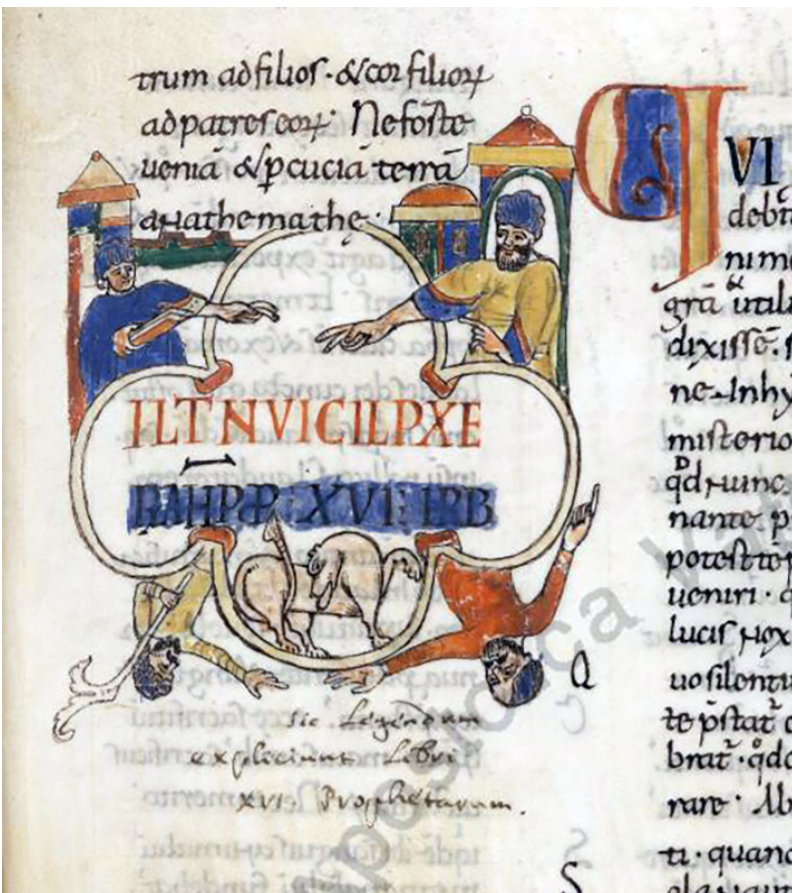 trum ad filios · & cor filioꝝ
ad patres eoꝝ · Ne forte
ueniã & ꝑcuciã terrã
anathemathe ·
ILTNVICILPXE
XVI
sic Legendum
expliciunt Libri
XVI Prophetarum.
QVI
debi
nime
grã utila
dixissẽ. s
ne. In hy
misterio
qd nunc.
nante. p
potest
ueniri · q
lucis nox
uo silentiu
te p̃stat̃
brat̃ · qdo
rare · Ab
ti · quand
apostolica Va